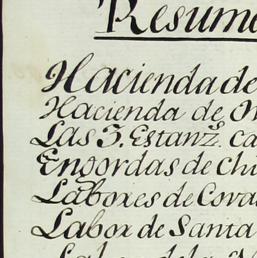 Resume
Hacienda de
Hacienda de
Las 3. Estanz.s ca
Engordas de Chi
Laboxes de Cova
Labor de Santa
Labor de la